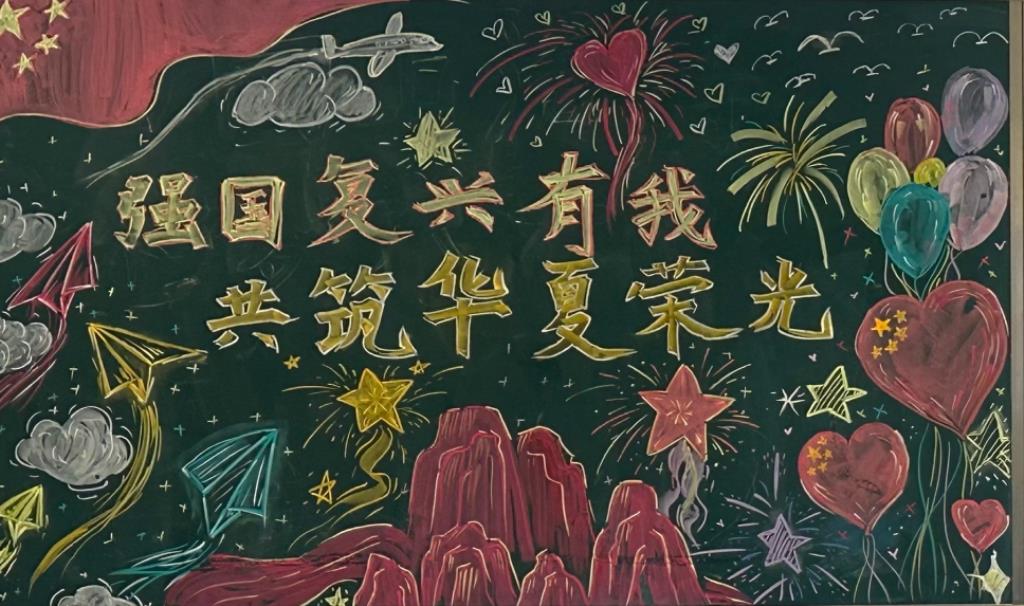 强国复兴有我
共筑华夏荣光